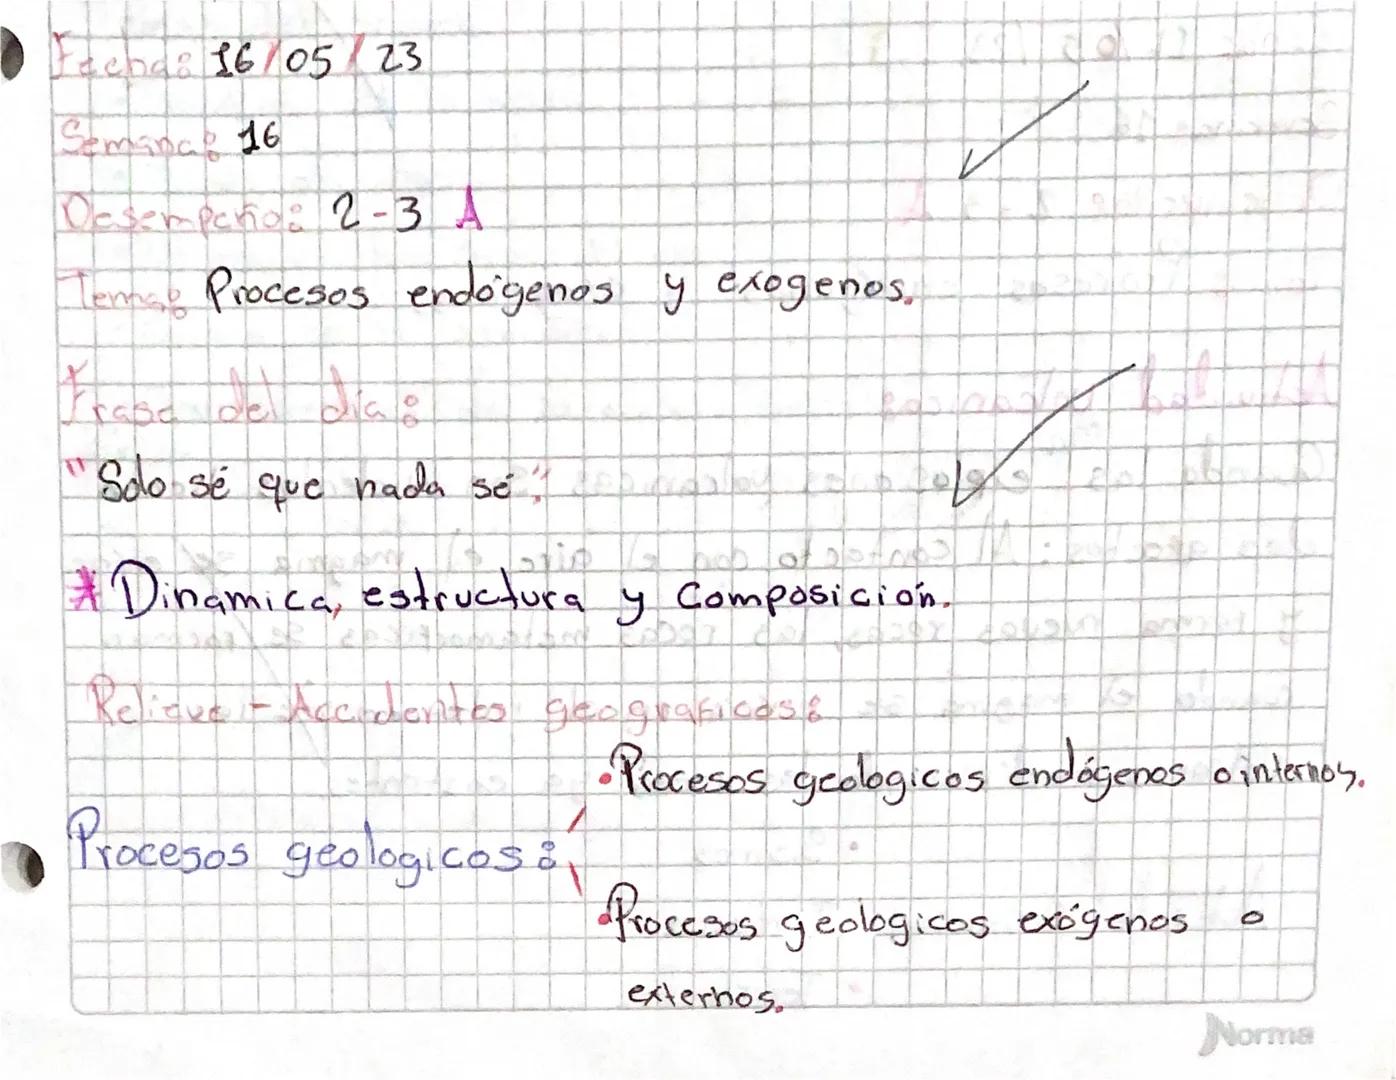 Fecha: 16/05/23
Semana: 16
Desempeño: 2-3 A
Tema: Procesos endógenos y exogenos.
Frase del día:
"Solo sé que nada sé".
* Dinamica, estructura y Composición.
Relieve - Accidentes geograficos:
• Procesos geologicos endógenos o internos.
Procesos geologicos:
• Procesos geologicos exógenos o
externos.
Norma